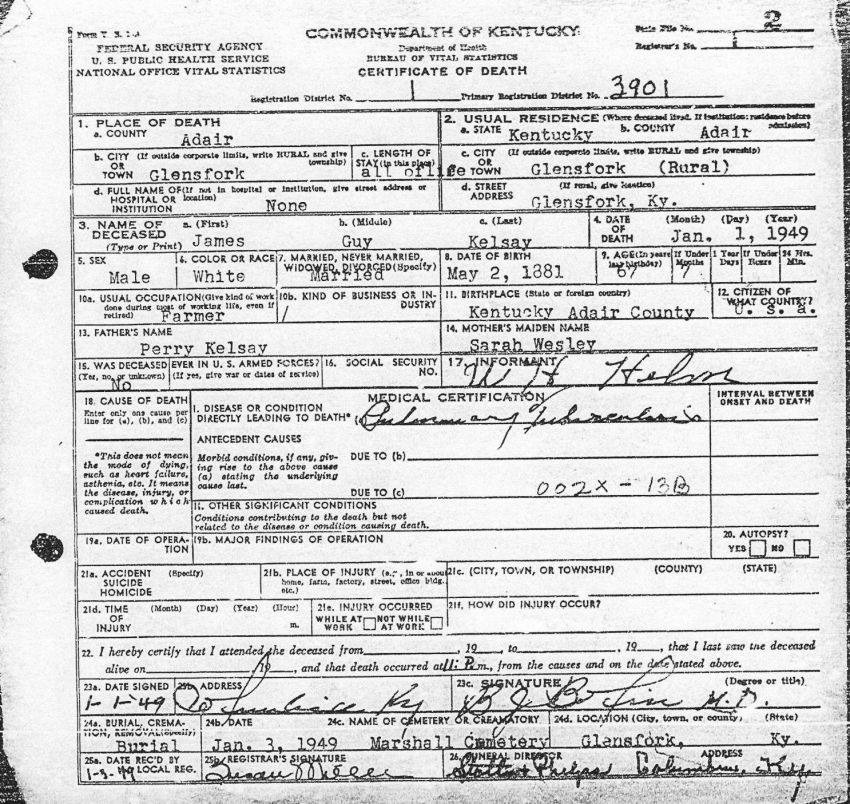 Form V. S. 1-A
COMMONWEALTH OF KENTUCKY
State File No. 2
FEDERAL SECURITY AGENCY
Department of Health
Registrar's No. 1
U. S. PUBLIC HEALTH SERVICE
BUREAU OF VITAL STATISTICS
NATIONAL OFFICE VITAL STATISTICS
CERTIFICATE OF DEATH
Registration District No. 1 Primary Registration District No. 3901
1. PLACE OF DEATH
a. COUNTY
Adair
2. USUAL RESIDENCE (Where deceased lived. If institution: residence before admission)
a. STATE Kentucky b. COUNTY Adair
b. CITY (If outside corporate limits, write RURAL and give township)
OR
TOWN Glensfork
c. LENGTH OF
STAY (in this place)
all of life
c. CITY (If outside corporate limits, write RURAL and give township)
OR
TOWN Glensfork (Rural)
d. FULL NAME OF (If not in hospital or institution, give street address or location)
HOSPITAL OR
INSTITUTION None
d. STREET (If rural, give location)
ADDRESS Glensfork, Ky.
3. NAME OF DECEASED
(Type or Print)
a. (First) b. (Middle) c. (Last)
James Guy Kelsay
4. DATE OF DEATH
(Month) (Day) (Year)
Jan. 1, 1949
5. SEX
Male
6. COLOR OR RACE
White
7. MARRIED, NEVER MARRIED, WIDOWED, DIVORCED (Specify)
Married
8. DATE OF BIRTH
May 2, 1881
9. AGE (In years last birthday)
67
If Under 1 Year
Months Days
7
If Under 24 Hrs.
Hours Min.
10a. USUAL OCCUPATION (Give kind of work done during most of working life, even if retired)
Farmer
10b. KIND OF BUSINESS OR INDUSTRY
11. BIRTHPLACE (State or foreign country)
Kentucky Adair County
12. CITIZEN OF WHAT COUNTRY?
U. S. a.
13. FATHER'S NAME
Perry Kelsay
14. MOTHER'S MAIDEN NAME
Sarah Wesley
15. WAS DECEASED EVER IN U. S. ARMED FORCES?
(Yes, no, or unknown) (If yes, give war or dates of service)
No
16. SOCIAL SECURITY NO.
17. INFORMANT
W H Helm
18. CAUSE OF DEATH
Enter only one cause per
line for (a), (b), and (c)
*This does not mean
the mode of dying,
such as heart failure,
asthenia, etc. It means
the disease, injury, or
complication which
caused death.
MEDICAL CERTIFICATION
INTERVAL BETWEEN
ONSET AND DEATH
I. DISEASE OR CONDITION
DIRECTLY LEADING TO DEATH* (a) Pulmonary Tuberculosis
ANTECEDENT CAUSES
Morbid conditions, if any, giv-
ing rise to the above cause
(a) stating the underlying
cause last.
DUE TO (b)
DUE TO (c)
002X - 13B
II. OTHER SIGNIFICANT CONDITIONS
Conditions contributing to the death but not
related to the disease or condition causing death.
19a. DATE OF OPERA-
TION
19b. MAJOR FINDINGS OF OPERATION
20. AUTOPSY?
YES NO
21a. ACCIDENT (Specify)
SUICIDE
HOMICIDE
21b. PLACE OF INJURY (e.g., in or about
home, farm, factory, street, office bldg.
etc.)
21c. (CITY, TOWN, OR TOWNSHIP) (COUNTY) (STATE)
21d. TIME (Month) (Day) (Year) (Hour)
OF
INJURY m.
21e. INJURY OCCURRED
WHILE AT WORK NOT WHILE AT WORK
21f. HOW DID INJURY OCCUR?
22. I hereby certify that I attended the deceased from , 19 , to , 19 , that I last saw the deceased
alive on , 19 , and that death occurred at 11: P.m., from the causes and on the date stated above.
23a. DATE SIGNED
1-1-49
23b. ADDRESS
Ky
23c. SIGNATURE (Degree or title)
M.D.
24a. BURIAL, CREMA-
TION, REMOVAL (Specify)
Burial
24b. DATE
Jan. 3, 1949
24c. NAME OF CEMETERY OR CREMATORY
Marshall Cemetery
24d. LOCATION (City, town, or county) (State)
Glensfork, Ky.
25a. DATE REC'D BY
LOCAL REG.
1-3-49
25b. REGISTRAR'S SIGNATURE
Susan Miller
26. FUNERAL DIRECTOR ADDRESS
Phelps Columbia, Ky.